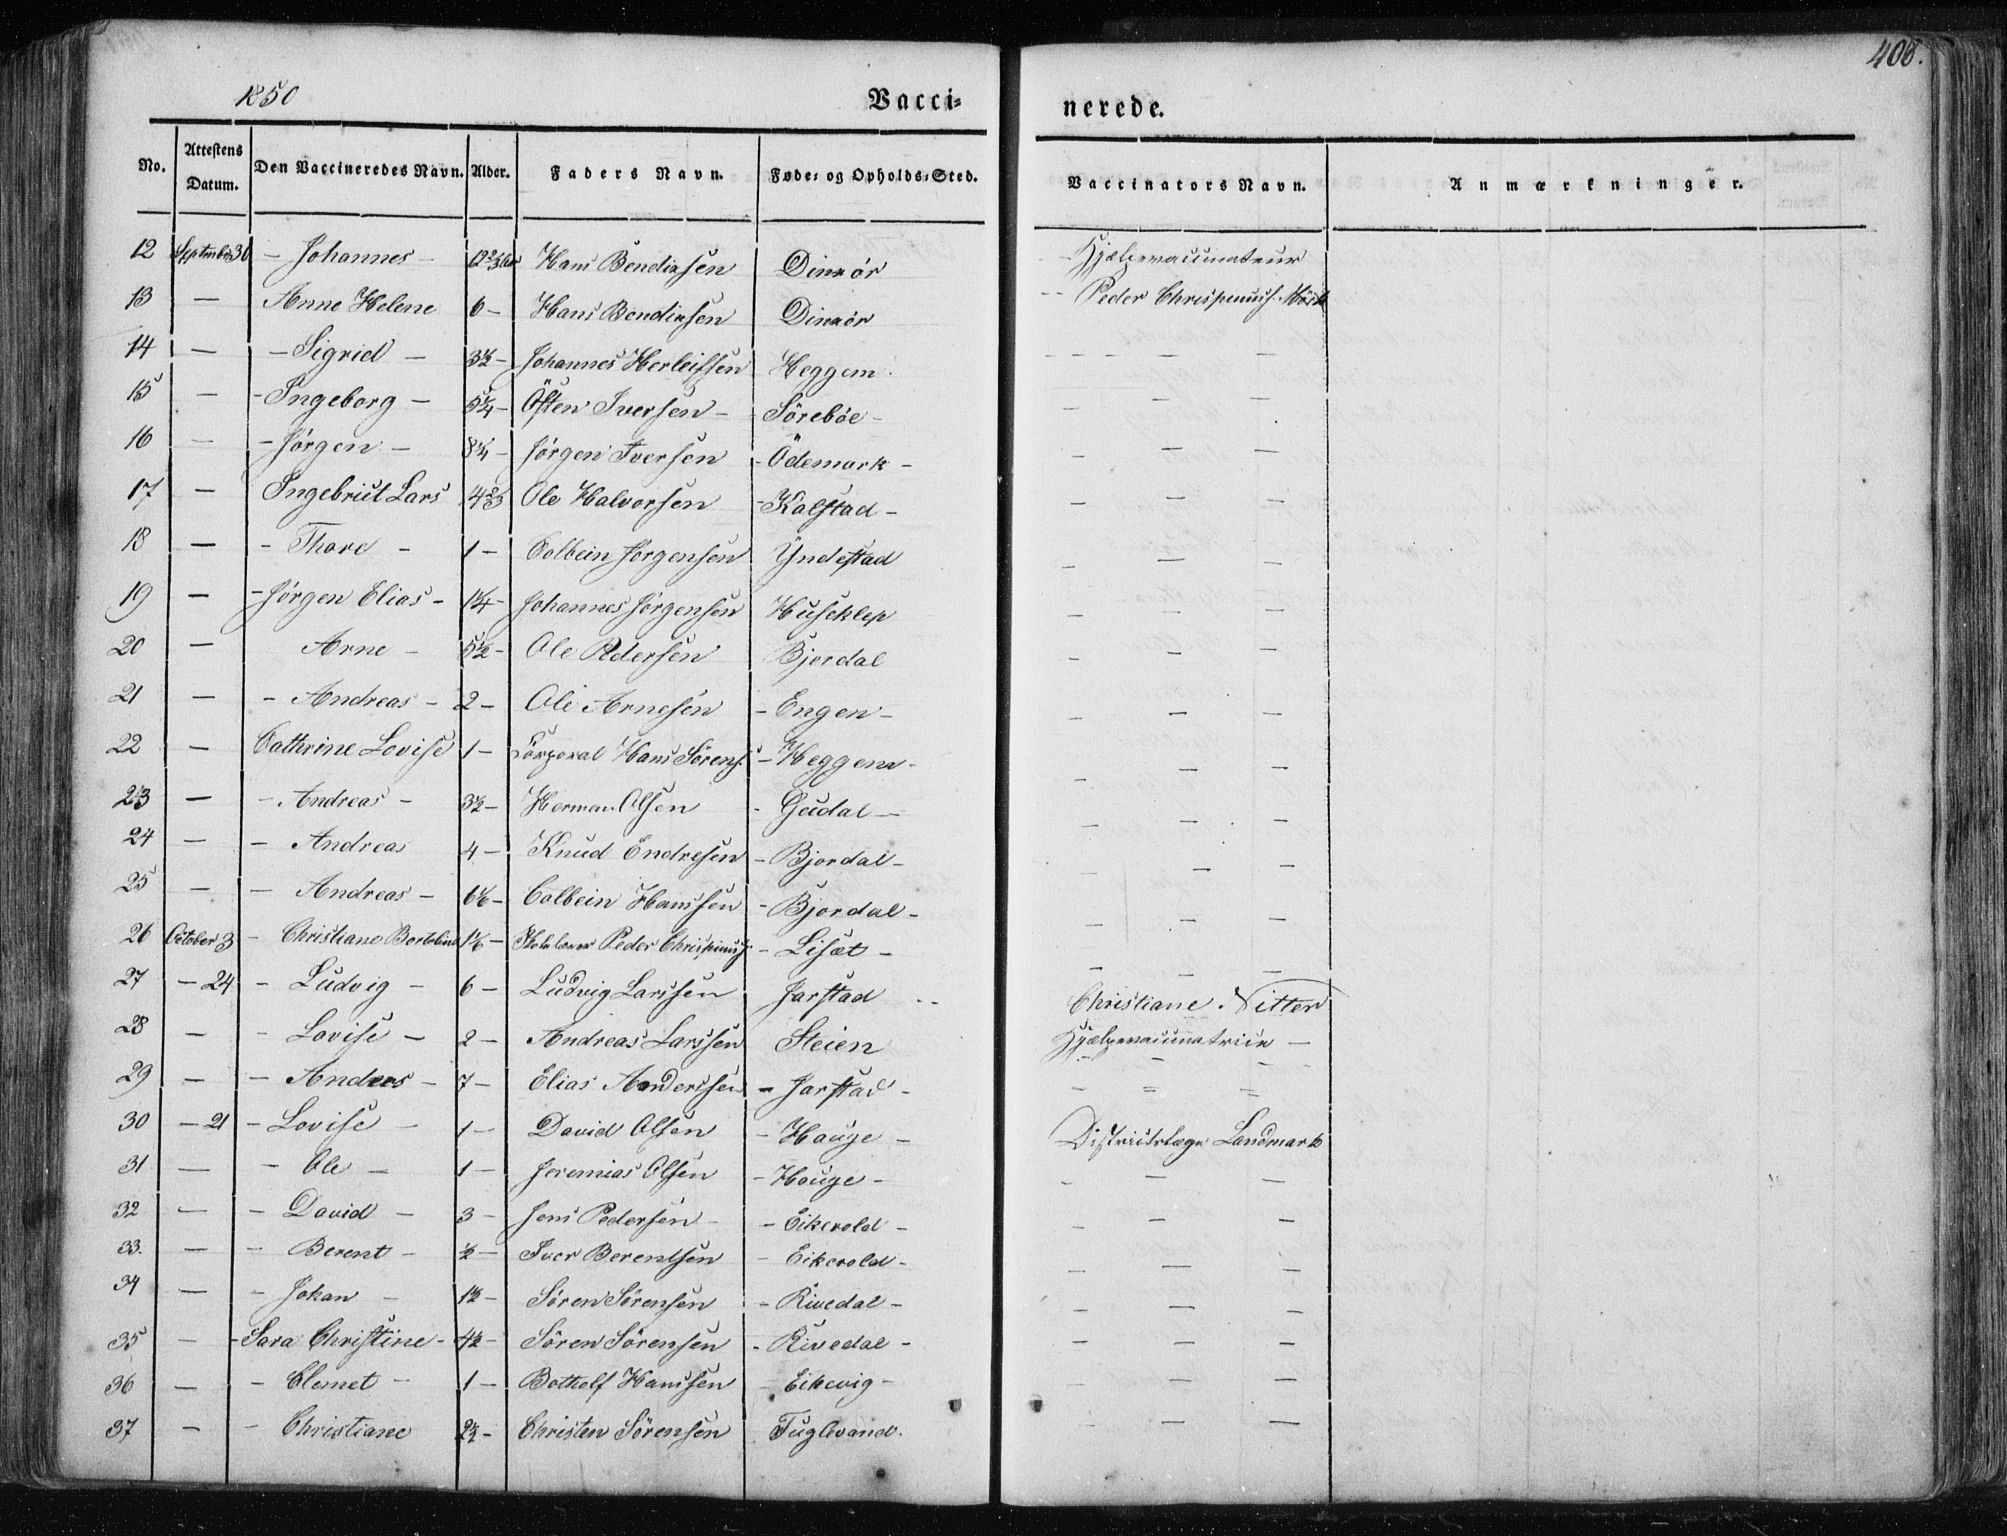 1850
Vacci-
nerede.
No. Attestens Datum. Den Vaccineredes Navn. Alder. Faders Navn. Føde- og Opholds-Sted. Vaccinators Navn. Anmærkninger.
12 September 30 - Johannes - 12 2/3 Aar Hans Bendixsen Dimør - Hjælpevaccinateur
13 - Anne Helene 6 - Hans Bendixsen Dimør - - Peder Chrispinuss. Mörk
14 - - Sigrid - 3½ - Johannes Herleifsen Heggem. - - - - -
15 - - Ingeborg - 5¼ - Östen Iversen - Sörebøe - - - -
16 - - Jørgen - 8¼ - Jørgen Iversen - Ödemark - - - -
17 - Ingebrict Lars 4⅔ Ole Halvorsen - Kalstad - - - -
18 - - Thore - 1 - Colbein Jørgensen Yndestad - - -
19 - - Jørgen Elias - 1¼ - Johannes Jørgensen Huseklep - - -
20 - Arne - 5½ - Ole Pedersen Bjordal - - -
21 - - Andreas - 2 - Ole Arnesen - Engen - - - -
22 - Cathrine Lovise 1 - Corporal Hans Sörens. - Heggem - - - -
23 - - Andreas - 3½ - Herman Olsen - Gudal - - - -
24 - - Andreas 4 - Knud Endresen - Bjordal - - - -
25 - - Andreas - 6½ - Colbein Hanssen - Bjordal - - - -
26 October 3 - Christiane Bertoline 1⅙ - Skolelærer Peder Chrispinuss. - Liset - - - -
27 - 24 - Ludvig - 6 - Ludvig Larssen Jarstad - - Christiane Nitter
28 - - Lovise - 2 - Andreas Larssen Steien Hjælpevaccinatrice -
29 - - Anders - 7 - Elias Anderssen - Jarstad - - - -
30 - 21 - Lovise - 1 - David Olsen - Hauge - Districtslæge Landmark
31 - - Ole - 1 - Jeremias Olsen - Hauge - - - -
32 - - David - 3 - Jens Pedersen - - Eikevold - - - -
33. - - Berent - ½ - Iver Berentsen - Eikevold - - - -
34 - - Johan - 1½ - Sören Sörensen - Rivedal - - - -
35 - - Sara Christine - 4½ - Sören Sörensen - Rivedal - - - -
36 - - Clemet - 1 - Botholf Hanssen - Eikevig - - - -
37 - - Christiane 2½ - Christen Sörensen Fuglevand. - - -